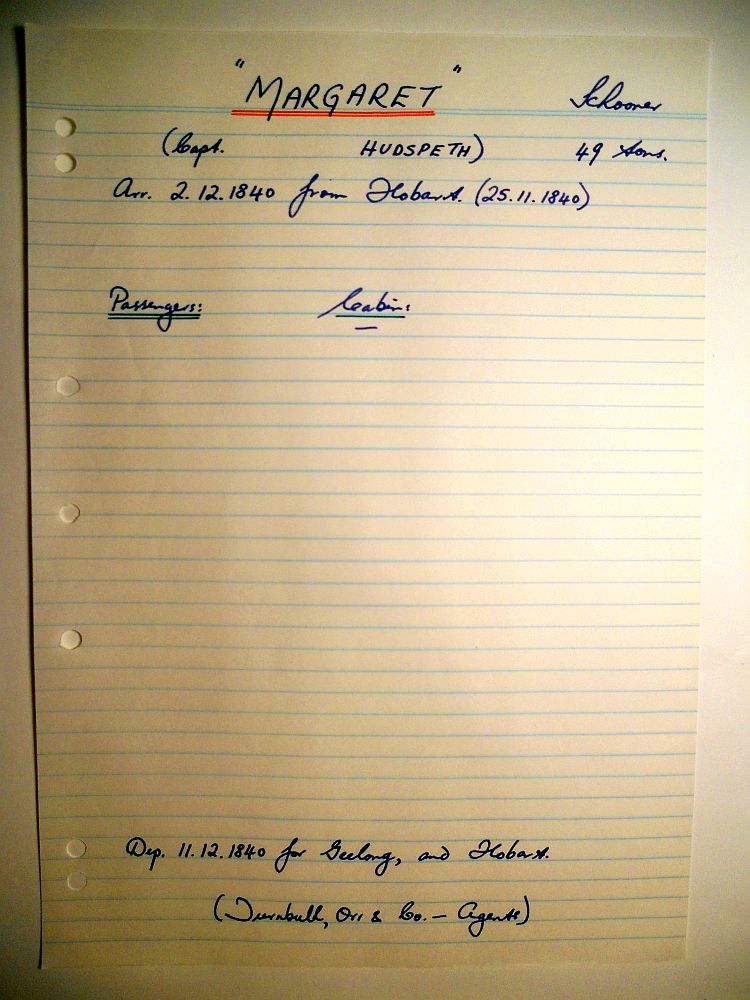 "MARGARET" Schooner
(Capt. HUDSPETH) 49 tons.
Arr. 2.12.1840 from Hobart. (25.11.1840)
Passengers: Cabin:
—
Dep. 11.12.1840 for Geelong, and Hobart.
(Turnbull, Orr & Co. — Agents)